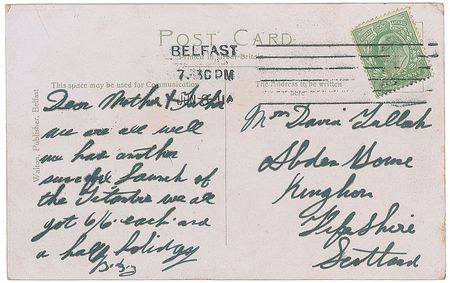 POST CARD
Printed in Great Britain
BELFAST
7.30PM
This space may be used for Communication
The Address to be written
here
Walton, Publisher, Belfast
Dear Mother &
we are all well
we had another
launch of
the Titantic we all
got 6/6 each and
a half holiday
Mrs David Tullah
Abden House
Kinghorn
Fifeshire
Scotland